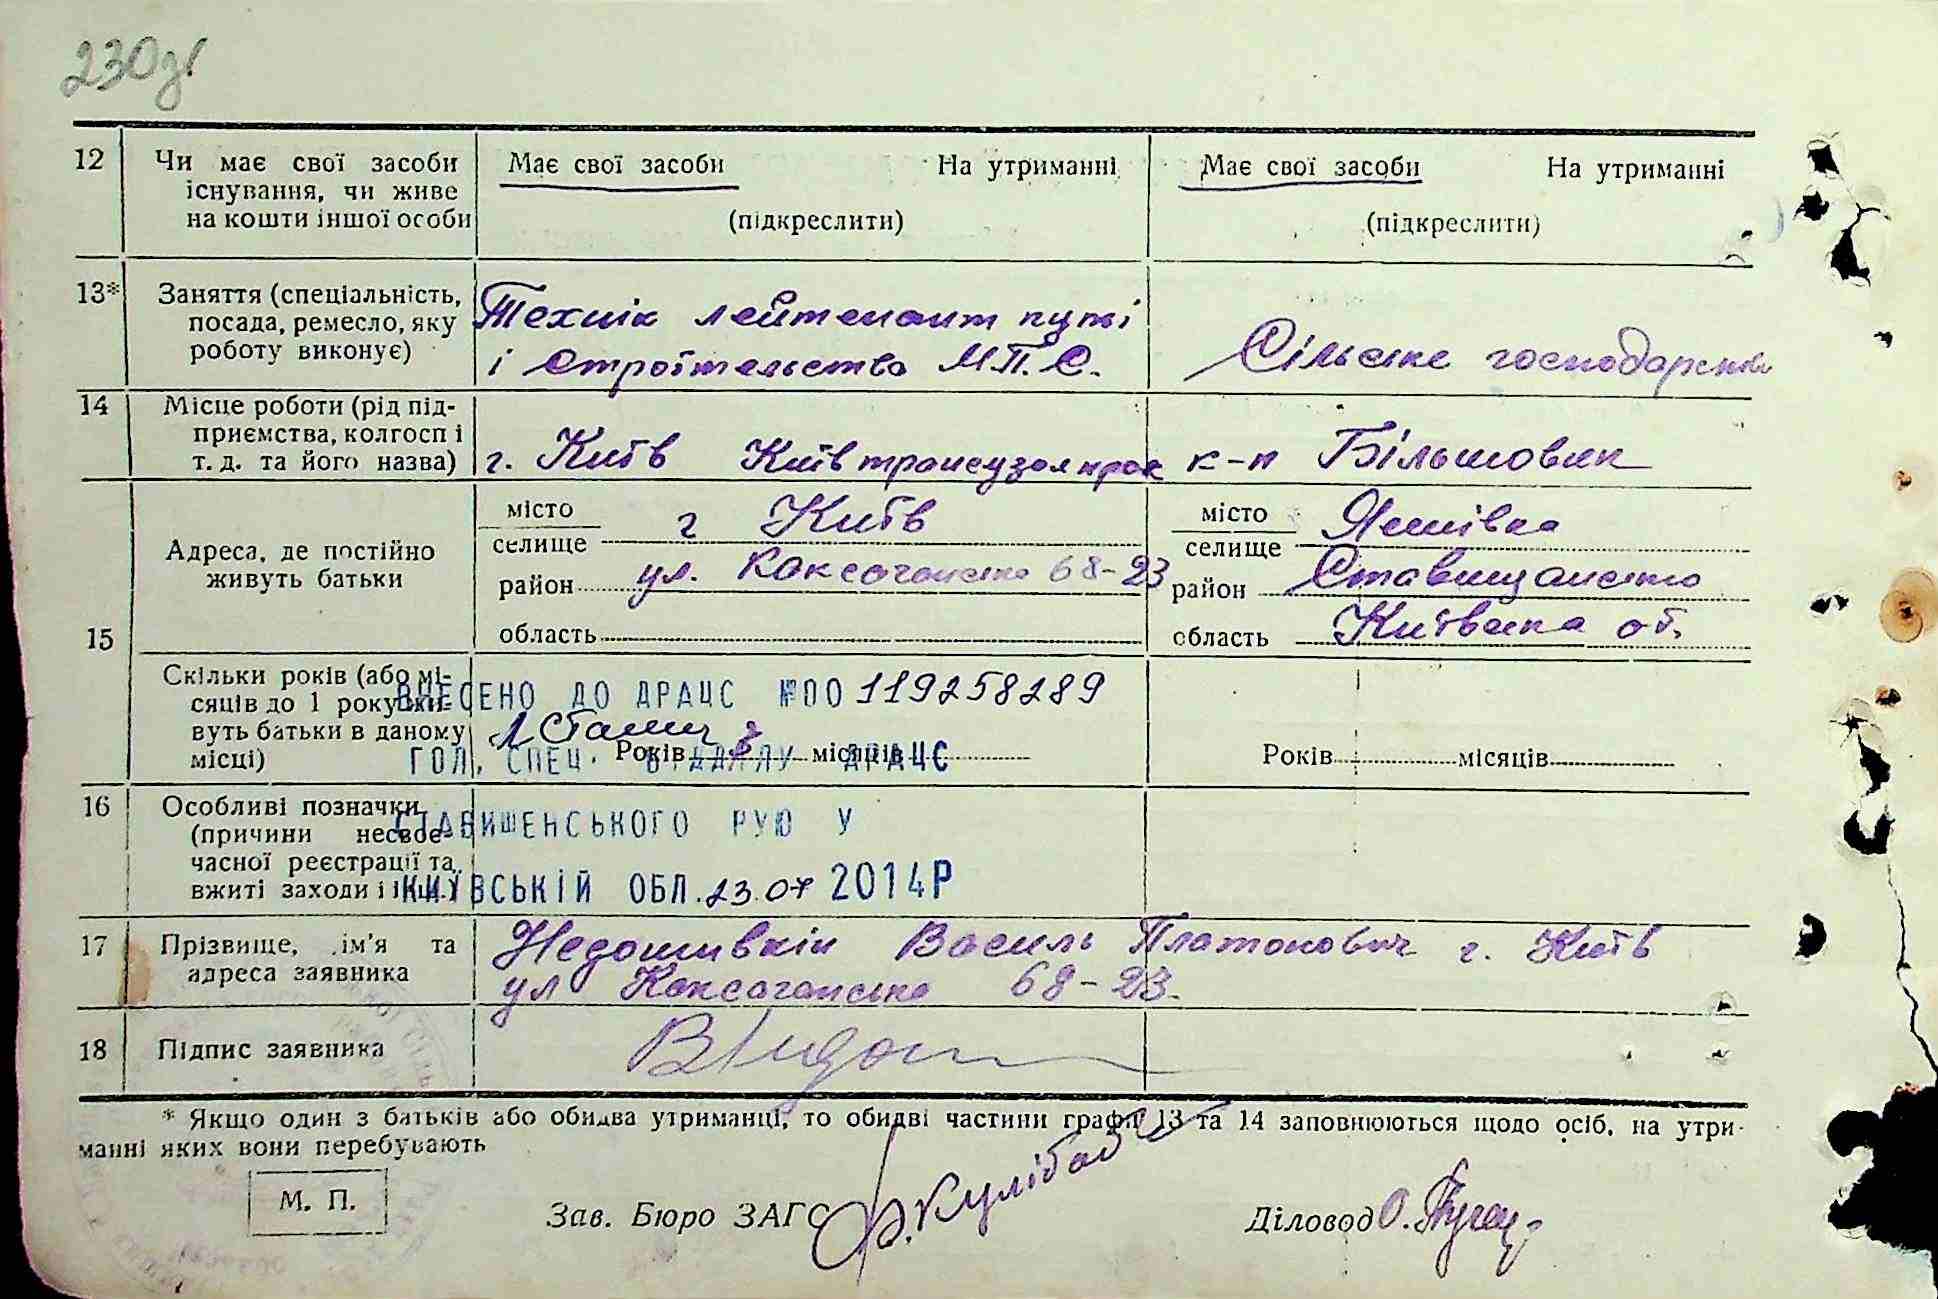 230
12 Чи має свої засоби існування, чи живе на кошти іншої особи
Має свої засоби На утриманні
(підкреслити)
Має свої засоби На утриманні
(підкреслити)
13* Заняття (спеціальність, посада, ремесло, яку роботу виконує)
Технік лейтенант путі
і строїтельства М.П.С.
Сільське господарство
14 Місце роботи (рід підприємства, колгосп і т. д. та його назва)
г. Київ
к-п Більшовик
15 Адреса, де постійно живуть батьки
місто
селище г Київ
район ул. Коксаганська 68-23
область
місто
селище
район Ставищанського
область Київська об.
Скільки років (або місяців до 1 року) живуть батьки в даному місці)
Років місяців
Років місяців
ВНЕСЕНО ДО ДРАЦС №00119258289
ГОЛ. СПЕЦ. ВІДДІЛУ ДРАЦС
СТАВИШЕНСЬКОГО РУЮ У
КИЇВСЬКІЙ ОБЛ. 23.07 2014Р
16 Особливі позначки (причини несвоєчасної реєстрації та вжиті заходи і інш.)
17 Прізвище, ім'я та адреса заявника
Недошивкін Василь Платонович г. Київ
ул Коксаганська 68-23.
18 Підпис заявника
* Якщо один з батьків або обидва утриманці, то обидві частини графи 13 та 14 заповнюються щодо осіб, на утри-
манні яких вони перебувають
М. П.
Зав. Бюро ЗАГС
Діловод